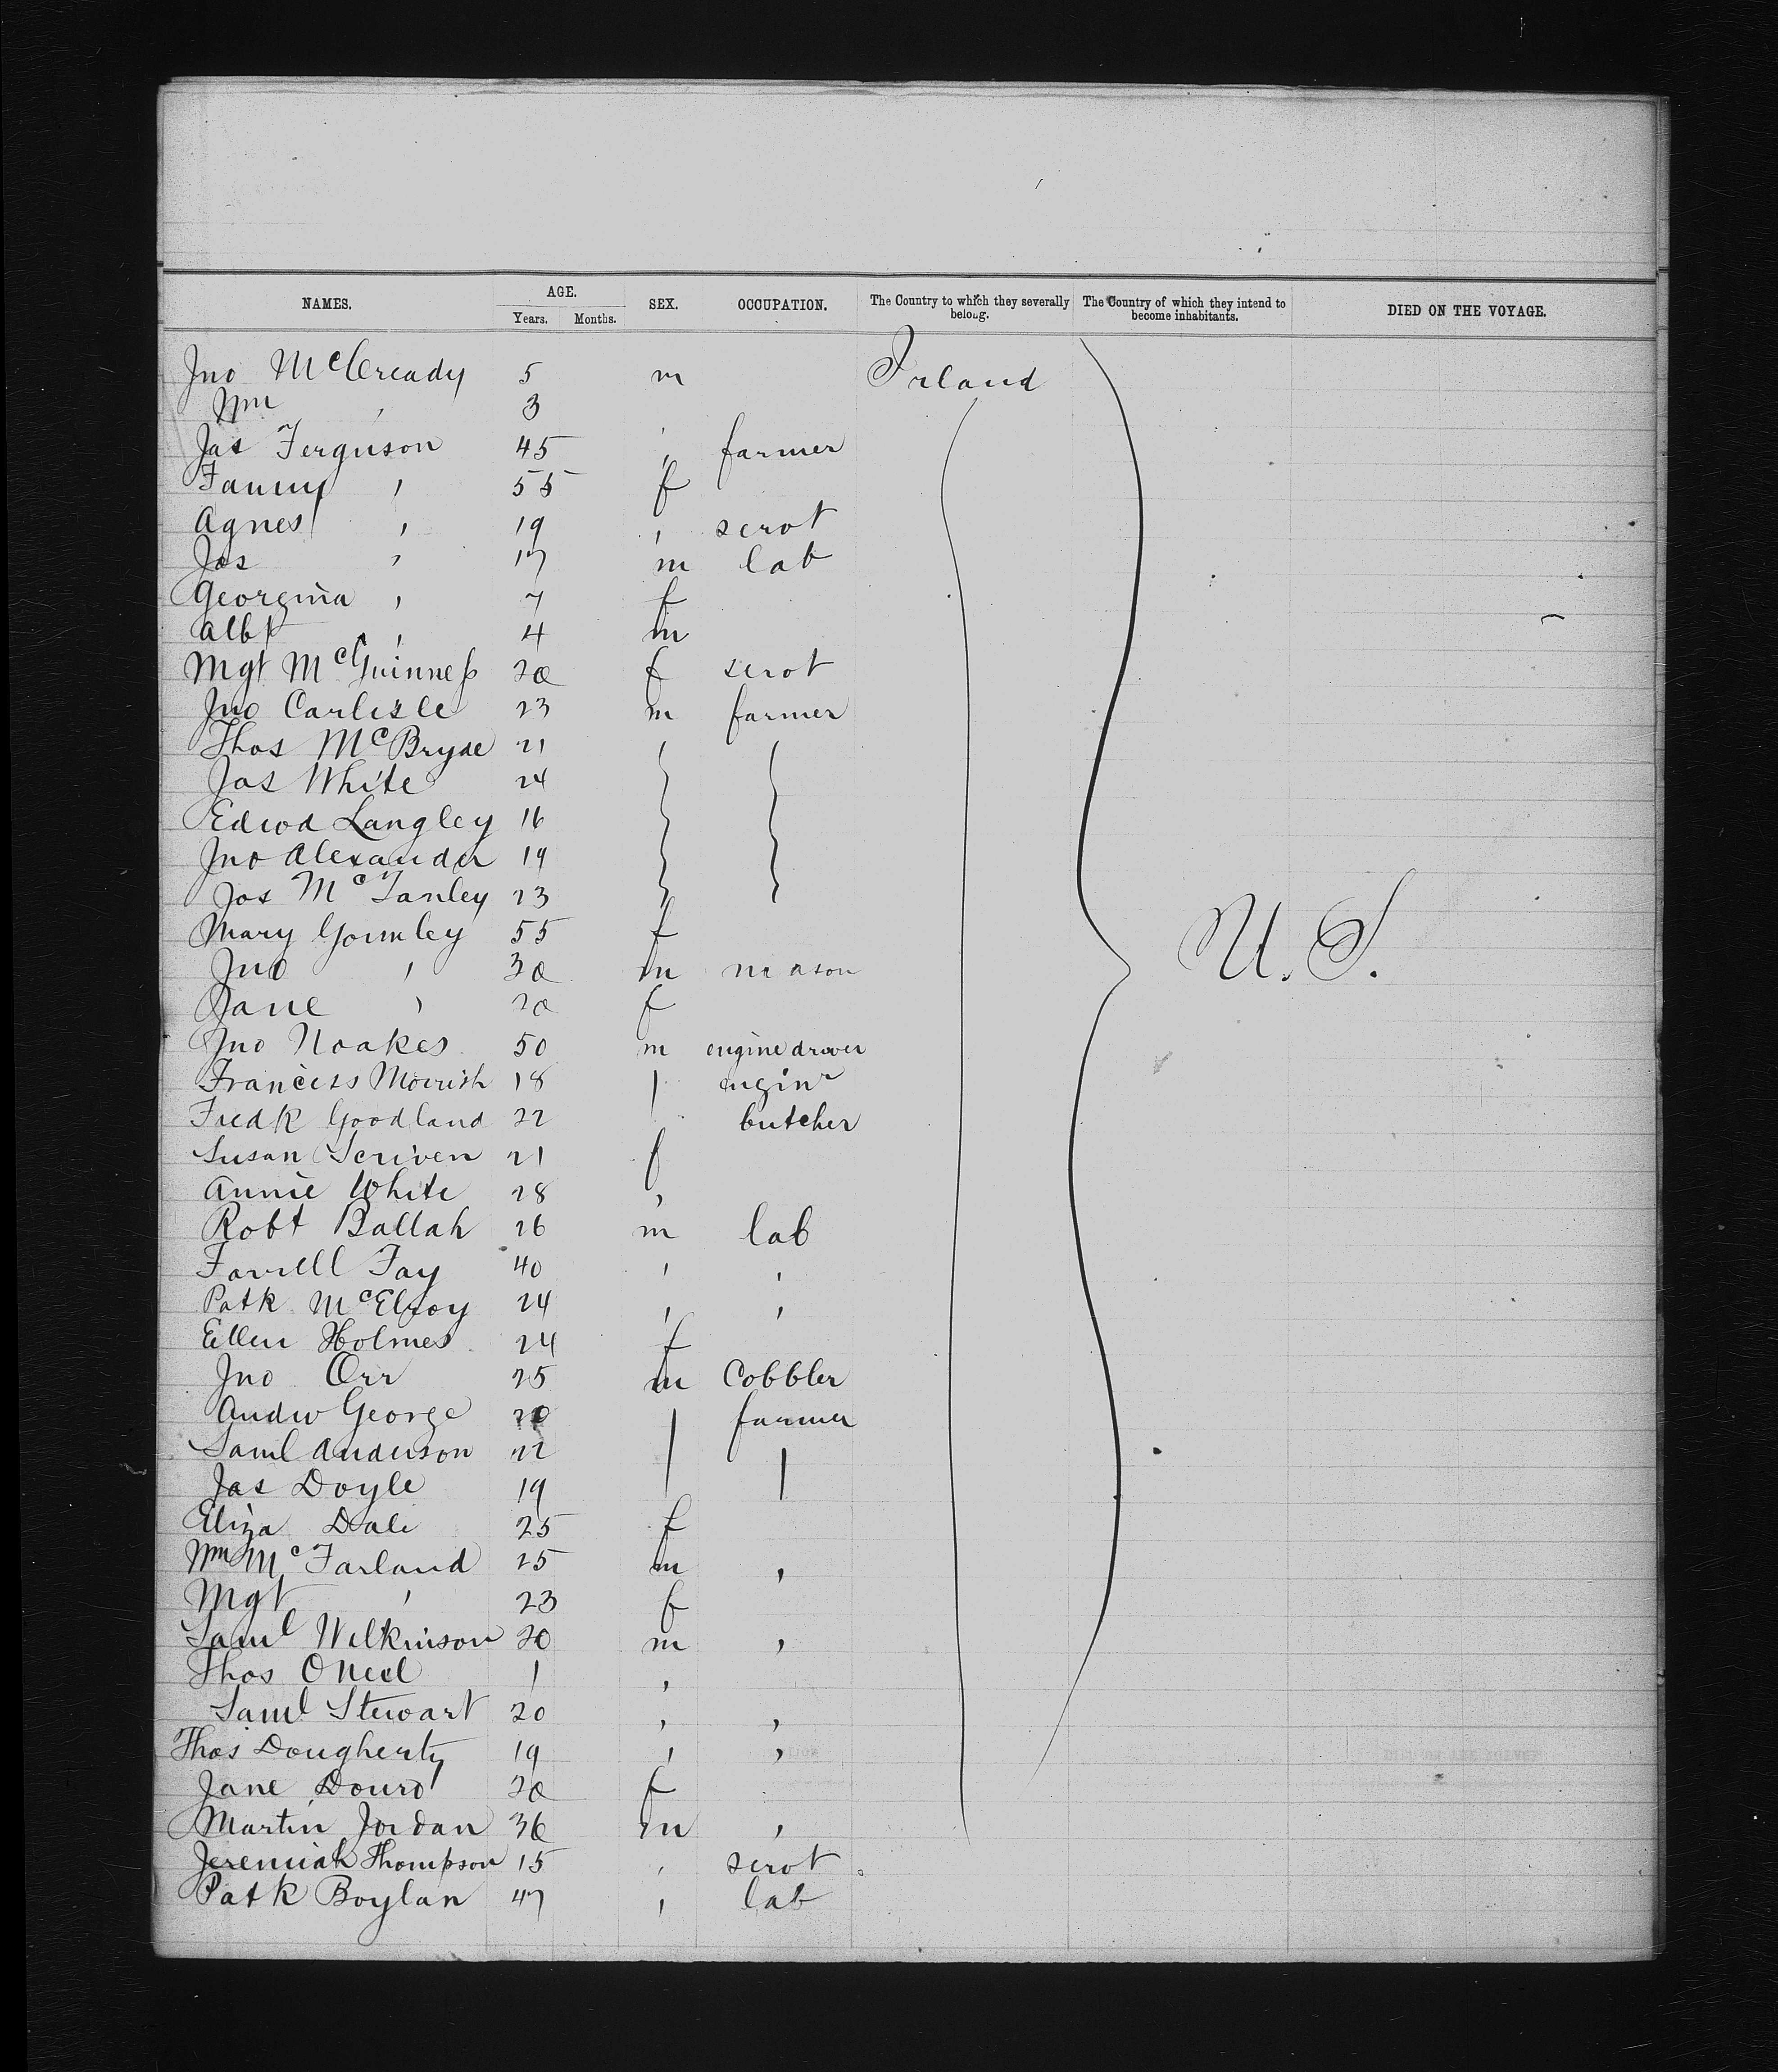 NAMES. AGE. SEX. OCCUPATION. The Country to which they severally belong. The Country of which they intend to become inhabitants. DIED ON THE VOYAGE.
Years. Months.
Jno McCready 5 m Irland
Wm " 3
Jas Ferguson 45 " farmer
Fanny " 55 f
Agnes " 19 " servt
Jos " 17 m lab
Georgina " 7 f
Albt " 4 m
Mgt McGuinness 20 f servt
Jno Carlisle 23 m farmer
Thos McBryde 21
Jas White 24
Edwd Langley 16
Jno Alexander 19
Jos McTanley 23
Mary Gormley 55 f
Jno " 30 m mason
Jane " 20 f
U. S.
Jno Noakes 50 m engine driver
Franciss Morrish 18 enginr
Fredk Goodland 22 butcher
Susan Scriven 21 f
Annie White 28 "
Robt Ballah 26 m lab
Farrell Fay 40 " "
Patk McElroy 24 " "
Ellen Holmes 24 f
Jno Orr 25 m Cobbler
Andw George farmer
Saml Anderson 22
Jas Doyle 19
Eliza Dale 25 f
Wm McFarland 25 m "
Mgt " 23 f
Saml Wilkinson 20 m "
Thos ONeil 1 "
Saml Stewart 20 " "
Thos Dougherty 19 " "
Jane Dourd 20 f
Martin Jordan 36 m "
Jeremiah Thompson 15 " servt
Patk Boylan 47 " lab